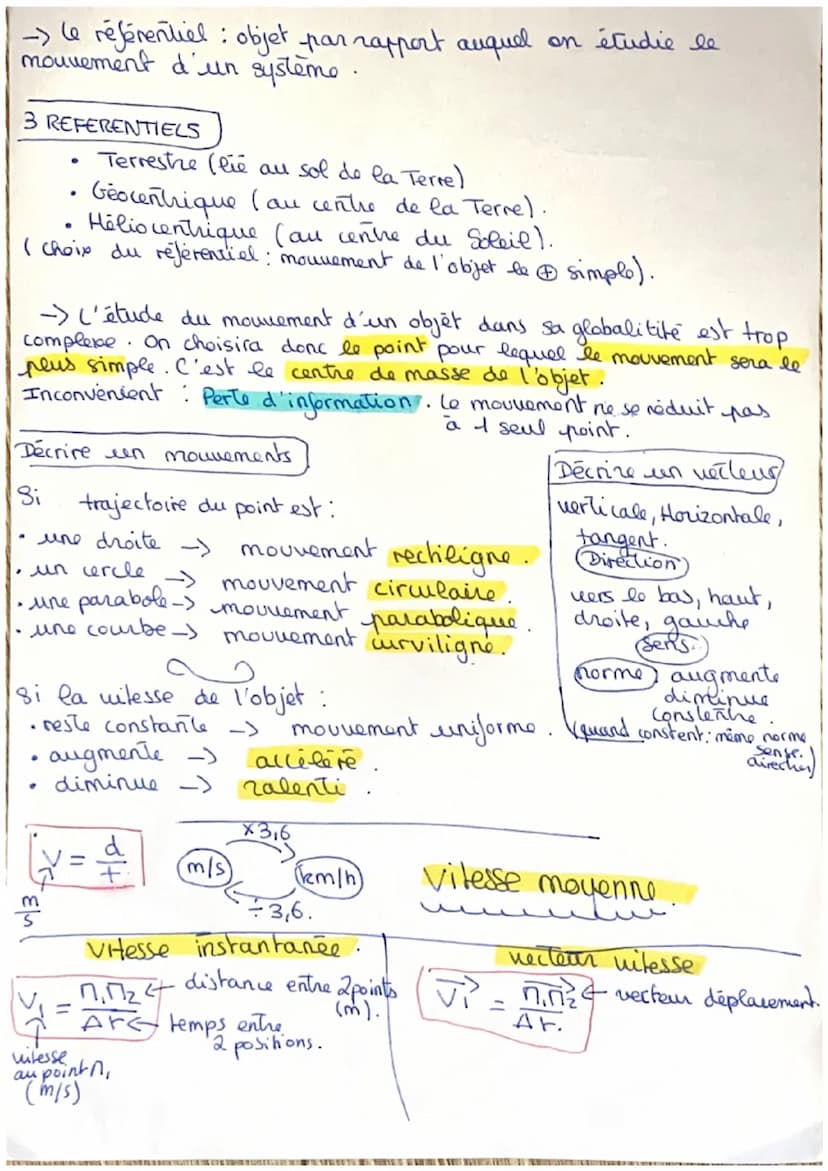 -> Le référentiel : objet par rapport auquel on étudie le
mouvement d'un système.
3 REFERENTIELS
• Terrestre (lié au sol de la Terre)
• Géocentrique (au centre de la Terre).
• Héliocentrique (au centre du Soleil).
(choix du référentiel : mouvement de l'objet le ⊕ simple).
-> L'étude du mouvement d'un objet dans sa globalitité est trop
complexe. On choisira donc le point pour lequel le mouvement sera le
plus simple. C'est le centre de masse de l'objet.
Inconvénient : Perte d'information. Le mouvement ne se réduit pas
à 1 seul point.
Décrire un mouvements
Si trajectoire du point est :
• une droite -> mouvement rectiligne.
• un cercle -> mouvement circulaire.
• une parabole -> mouvement parabolique.
• une courbe -> mouvement curviligne.
Si la vitesse de l'objet :
• reste constante -> mouvement uniforme.
• augmente -> accéléré.
• diminue -> ralenti.
Décrire un vecteur
verticale, Horizontale,
tangent.
Direction
vers le bas, haut,
droite, gauche
sens.
norme augmente
diminue
constente.
(quand constent : même norme
sens.
direction)
V = d/t
m/s
x3,6
m/s km/h
÷3,6.
Vitesse moyenne.
Vitesse instantanée.
V1 = M1M2/Δt
distance entre 2 points
(m).
temps entre
2 positions.
vitesse
au point M1
(m/s)
vecteur vitesse
V1 = M1M2/Δt.
vecteur déplacement.